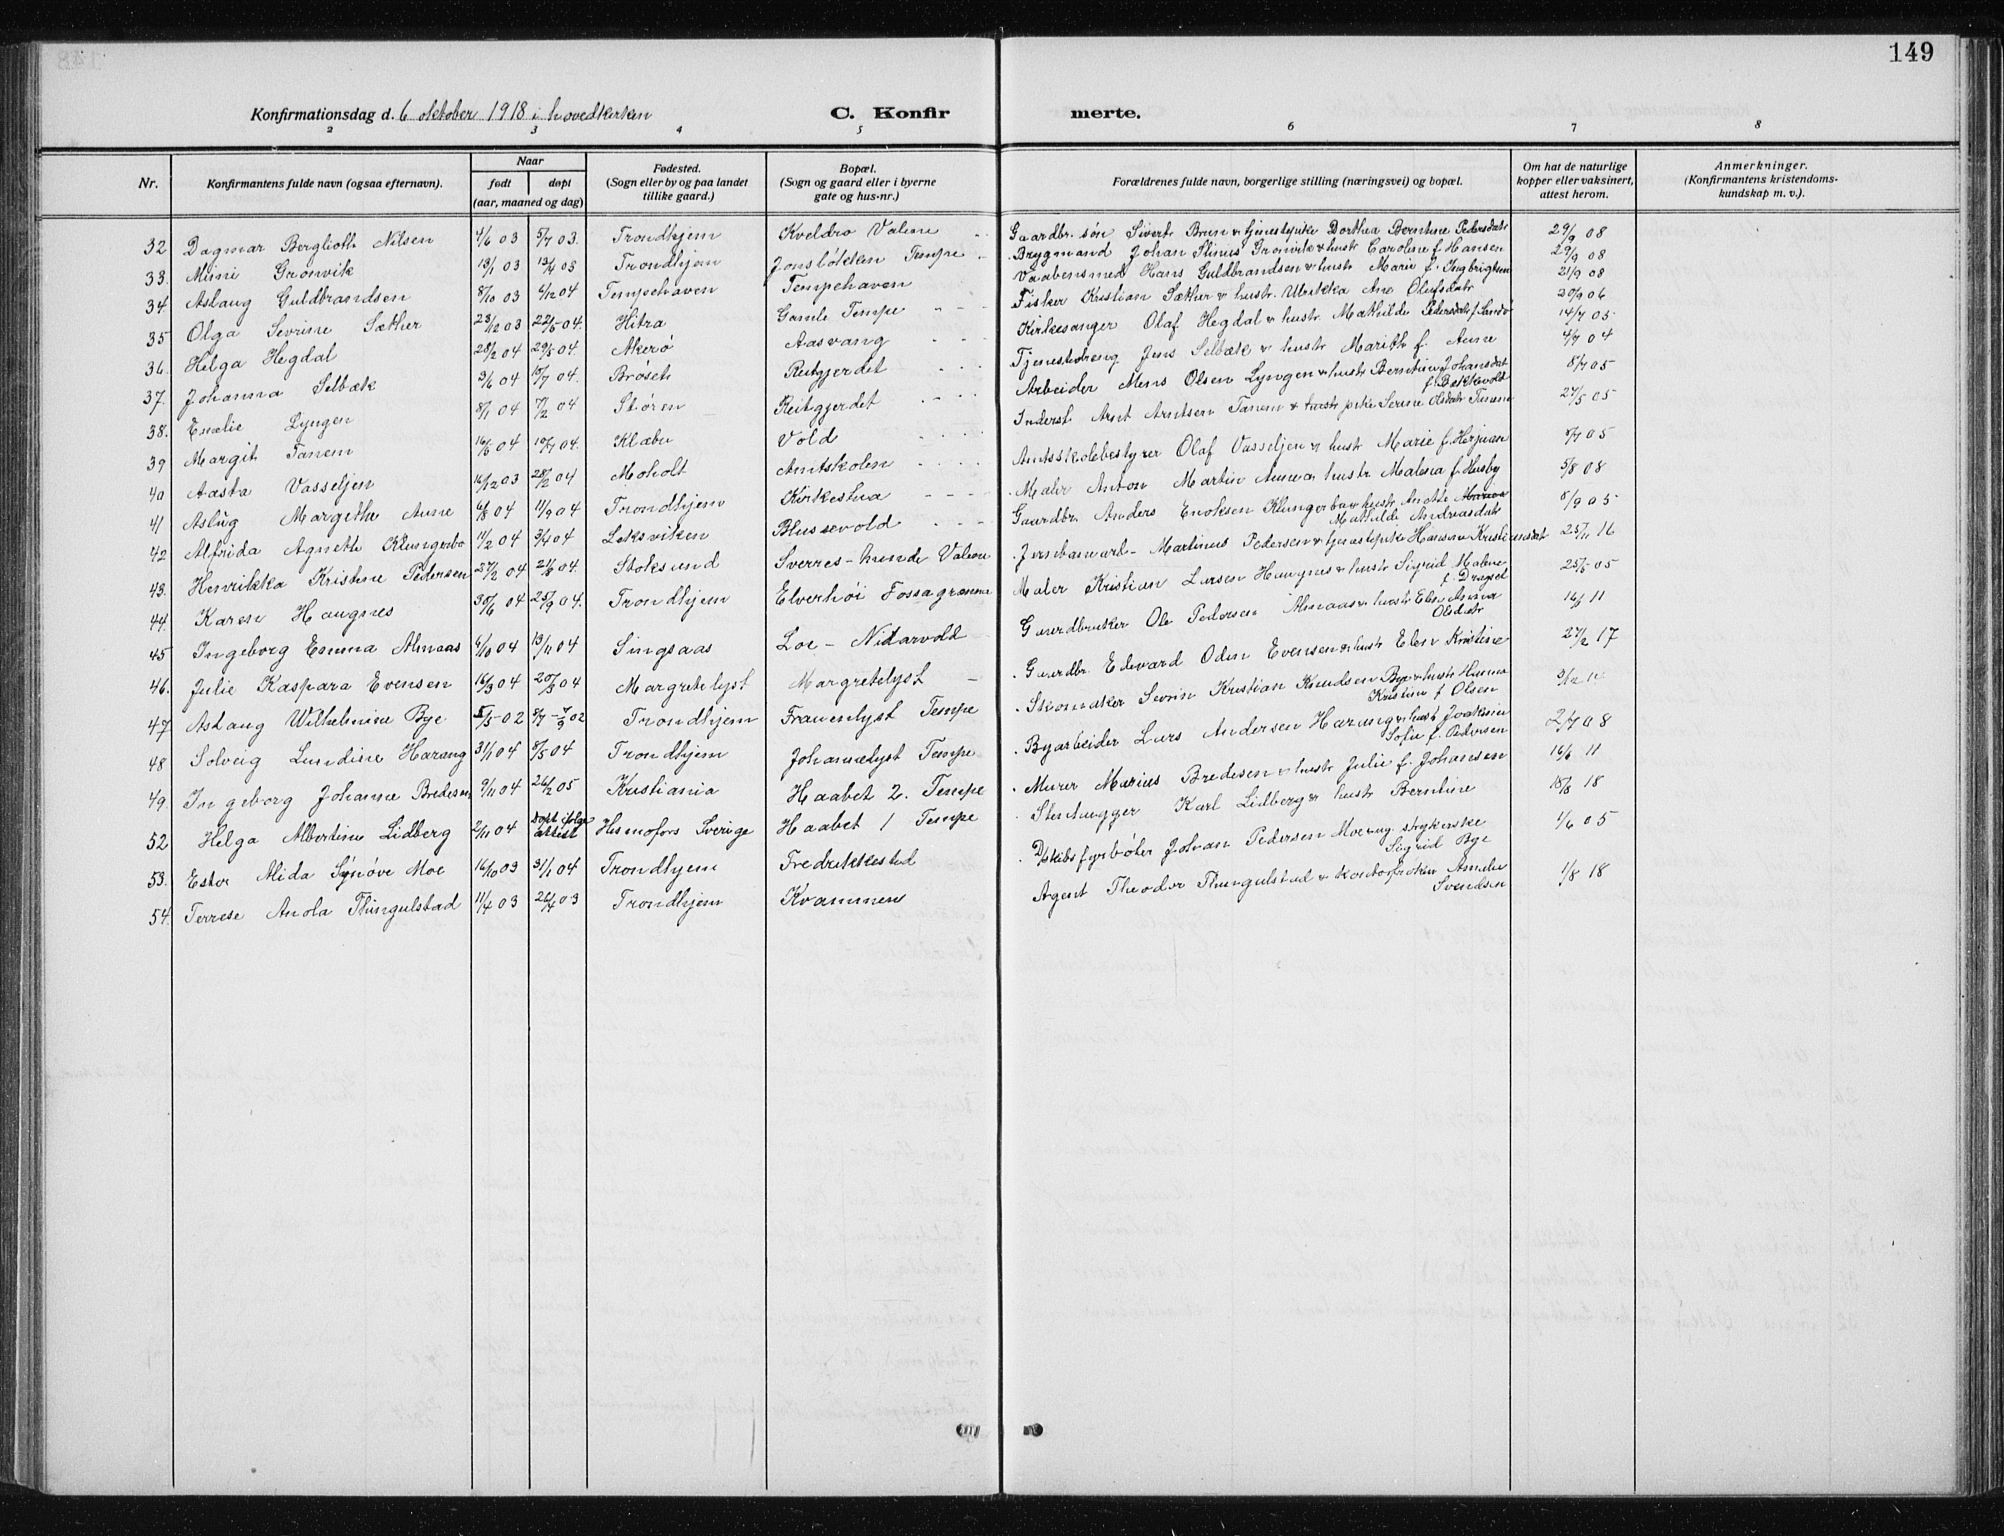 149
Konfirmationsdag d. 6 oktober 1918 i hovedkirken C. Konfir merte.
2 3 4 5 6 7 8
Nr. Konfirmantens fulde navn (ogsaa efternavn). Naar født døpt (aar, maaned og dag) Fødested. (Sogn eller by og paa landet tillike gaard.) Bopæl. (Sogn og gaard eller i byerne gate og hus-nr.) Forældrenes fulde navn, borgerlige stilling (næringsvei) og bopæl. Om hat de naturlige kopper eller vaksinert, attest herom. Anmerkninger. (Konfirmantens kristendomskundskap m. v.).
32 Dagmar Berglioth Nilsen 4/6 03 5/7 03. Trondhjem Kveldro Valene Gaardbr. søn Sivert Brun & tjenestepike Dorthea Berntine Pedersdatr 29/9 08
33. Mimi Grønvik 19/1 03 13/4 03 Trondhjem Jonsløkken Tempe Brygmand Johan Stinus Grønvik & hustr Caroline f. Hansen 29/9 08
34 Aslaug Guldbrandsen 8/10 03 6/12 04 Tempehaven Tempehaven Vaabensmed Hans Guldbrandsen & hustr Marie f. Ingbrigtsen 21/9 08
35 Olga Sevrine Sæther 23/12 03 22/5 04. Hitra Gamle Tempe Fisker Kristian Sæther & hustr. Ulrikka Ane Olufsdatr 20/9 06
36. Helga Hegdal 28/2 04 29/5 04. Akerø Aasvang Kirkesanger Olaf Hegdal & hustr Mathilde Pedersdatr f. Sandø 14/7 05
37. Johanna Selbæk 3/6 04 10/7 04. Brøset Reitgjerdet Tjenestedreng Jens Selbæk & hustr Marith f. Aune 4/7 04
38. Emelie Lyngen 8/1 04 7/2 04 Støren Reitgjerdet Arbeider Mens Olsen Lyngen & hustr Berntine Johansdat f. Bekkvold 8/7 05
39 Margit Tanem 16/6 04 10/7 04. Klæbu Vold Inderst Arnt Arntsen Tanem & hustr pike Serine Olsdatr Tanem 27/5 05
40 Aasta Vasseljen 16/12 03 28/2 04 Moholt Amtskolen Amtsskolebestyrer Olaf Vasseljen & hustr Marie f. Herjuan 8/7 05
41 Aslug Margithe Aune 6/8 04 11/9 04 Trondhjem Kirkestua Maler Anton Martin Aune & hustr Malena f. Husby 5/8 08
42 Alfrida Agnette Klungerbo 11/2 04 3/4 04 Leksviken Blussevold Gaardbr. Anders Enoksen Klungerbo & hustr Anette Mathilde Andreasdatr 8/9 05
43. Henrikka Kristine Pedersen 27/2 04 21/8 04. Stoksund Sverres-minde Valene Jernbanearb. Martinus Pedersen & tjenestepike Hansine Kristiansdat 25/11 16
44. Karen Haugnes 30/6 04 25/9 04. Trondhjem Elverhøi Fossegrenna Maler Kristian Larsen Haugnes & hustr Sigrid Malene f. Dragset 25/5 05
45 Ingeborg Emma Almaas 6/10 04 13/11 04 Singsaas Loe - Nidarvold Gaardbruker Ole Pedersen Almaas & hustr Elen Anna Olsdatr 16/8 11
46. Julie Kaspara Evensen 16/3 04 20/5 04 Margretelyst Margretelyst Gaardbr. Edvard Odin Evensen & hustr Elen Kristine 27/2 17
47 Aslaug Wilhelmine Bye 5/5 02 8/7 - 7/9 02 Trondhjem Fruenlyst Tempe Skomaker Sevrin Kristian Knudsen Bye & hustr Hanna Kristine f Olsen
48 Solveig Lundine Harang 31/1 04 8/5 04 Trondhjem Johannelyst Tempe Byarbeider Lars Andersen Harang & hustr Joakime Sofie f. Pedersen 2/7 08
49. Ingeborg Johanne Bredesen 9/11 04 26/2 05 Kristiania Haabet 2. Tempe Murer Marius Bredesen & hustr Julie f. Johansen 16/6 11
52 Helga Albertine Lidberg 2/11 04 Døpt ifølge attest Hemofors Sverige Haabet 1 Tempe Stenhugger Karl Lidberg & hustr Berntine 18/8 18
53. Ester Alida Synøve Moe 16/10 03 31/1 04 Trondhjem Fredrikkestad D/Skibsfyrbøter Johan Pedersen Moe & ug. strykerske Sigrid Bye 1/6 05
54. Terrese Anola Thingulstad 11/4 03 26/4 03 Trondhjem Kvammen Agent Theodor Thingulstad & Kontorfrøken Amalie Svendsen 1/8 18